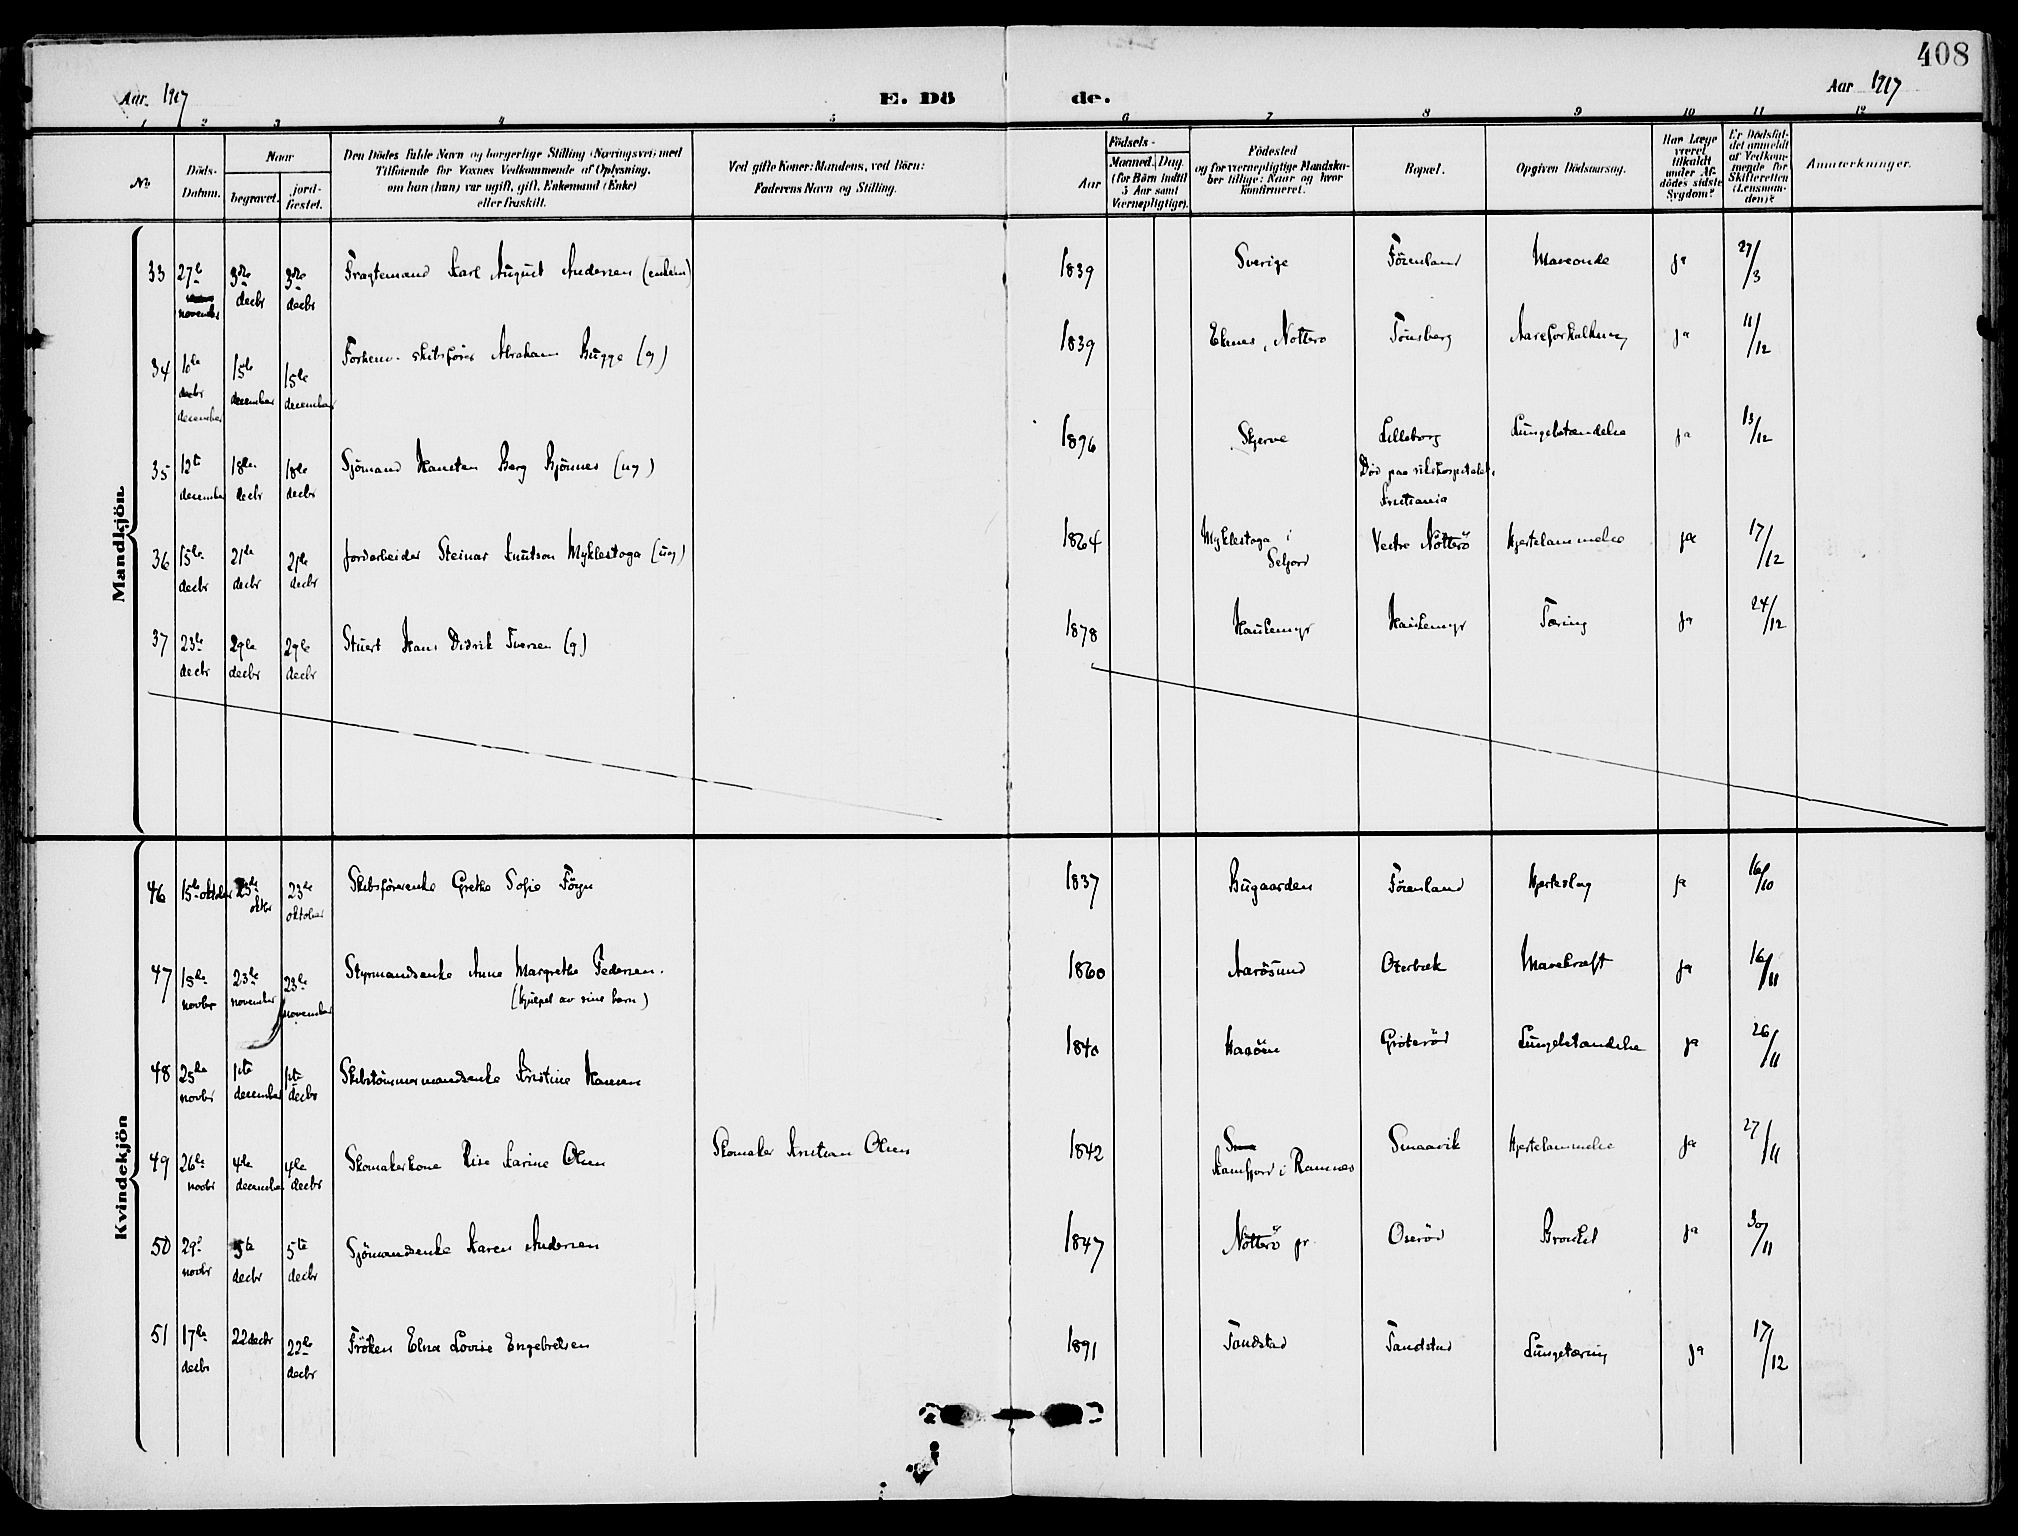 408
Aar 1917
E. Döde.
Aar 1917
1 2 3 4 5 6 7 8 9 10 11 12
No.
Döds-Datum.
Naar
begravet.
jord-fæstet.
Den Dödes fulde Navn og borgerlige Stilling (Næringsvei) med
Tilföiende for Voxnes Vedkommende af Oplysning,
om han (hun) var ugift, gift, Enkemand (Enke)
eller fraskilt.
Ved gifte Koner: Mandens, ved Börn:
Faderens Navn og Stilling.
Födsels-
Aar
Maaned. Dag.
(for Börn indtil
5 Aar samt
Værnepligtige).
Födested
og for værnepligtige Mandska-
ber tillige: Naar og hvor
konfirmeret.
Bopæl.
Opgiven Dödsaarsag.
Har Læge
været
tilkaldt
under Af-
dödes sidste
Sygdom?
Er Dödsfal-
det anmeldt
af Vedkom-
mende for
Skifteretten
(Lensman-
den)?
Anmærkninger.
Mandkjön
33 27de november 3die decbr 3die decbr Fragtemand Karl August Andersen (enkem) 1839 Sverige Föienland ja 27/3
34 10de decbr december 15de december 15de december Forhenv. skibsfører Abraham Bugge (g) 1839 Ekenes, Nøtterø Tønsberg Aareforkalkning ja 11/12
35 12te december 18de decbr 18de decbr Sjömand Karsten Berg Bjönnes (ug) 1896 Skjerve Lilleborg Lungebetændelse ja 13/12
Död paa rikshospitalet,
Kristiania
36 15de decbr 21de decbr 21de decbr Jordarbeider Steinar Knutson Myklestoga (ug) 1864 Myklestoga i Seljord Vestre Nötterö Hjertelammelse ja 17/12
37 23de decbr 29de decbr 29de decbr Stuert Hans Didrik Iversen (g) 1878 Haukemyr Haukemyr Tæring ja 24/12
Kvindekjön
46 15de oktober 23de oktbr 23de oktober Skibsförerenke Grethe Sofie Föyn 1837 Bugaarden Föienland Hjerteslag ja 16/10
47 15de novbr 23de november 23de november Styrmandsenke Anne Margrethe Pedersen. 1860 Aarösund Oterbæk Mavekræft ja 16/11
(hjulpet av sine barn)
48 25de novbr 1ste december 1ste decbr Skibstömmermandsenke Kristine Hansen 1840 Haaöen Gröteröd Lungebetændelse ja 26/11
49 26de novbr 4de december 4de decbr Skomakerkone Karine Olsen Skomaker Kristian Olsen 1842 i Ramnes Smaavik Hjertelammelse ja 27/11
50 29de novbr 5te decbr 5te decbr Sjömandsenke Karen Andersen 1847 Nötterö pr. Oseröd ja 30/11
51 17de decbr 22 decbr 22de decbr Fröken Elna Lovise Engebretsen 1891 Tandstad Tandstad Lungetæring ja 17/12